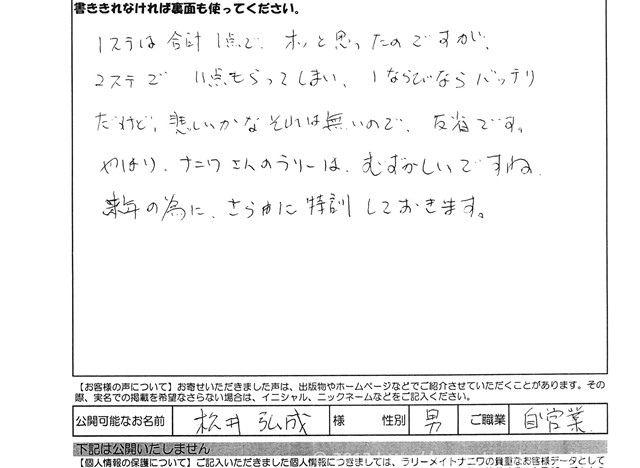 書ききれなければ裏面も使ってください。
1ステは合計1点で、ホッと思ったのですが、
2ステで 11点もらってしまい、1ならびならバッチリ
だけど、悲しいかなそれは無いので、反省です。
やはり、ナニワさんのラリーは、むずかしいですね
来年の為に、さらなに特訓しておきます。
【お客様の声について】お寄せいただきました声は、出版物やホームページなどでご紹介させていただくことがあります。その
際、実名での掲載を希望なさらない場合は、イニシャル、ニックネームなどをご記入ください。
公開可能なお名前 松井 弘成 様 性別 男 ご職業 自営業
下記は公開いたしません
【個人情報の保護について】ご記入いただきました個人情報につきましては、ラリーメイトナニワの貴重なお客様データとして